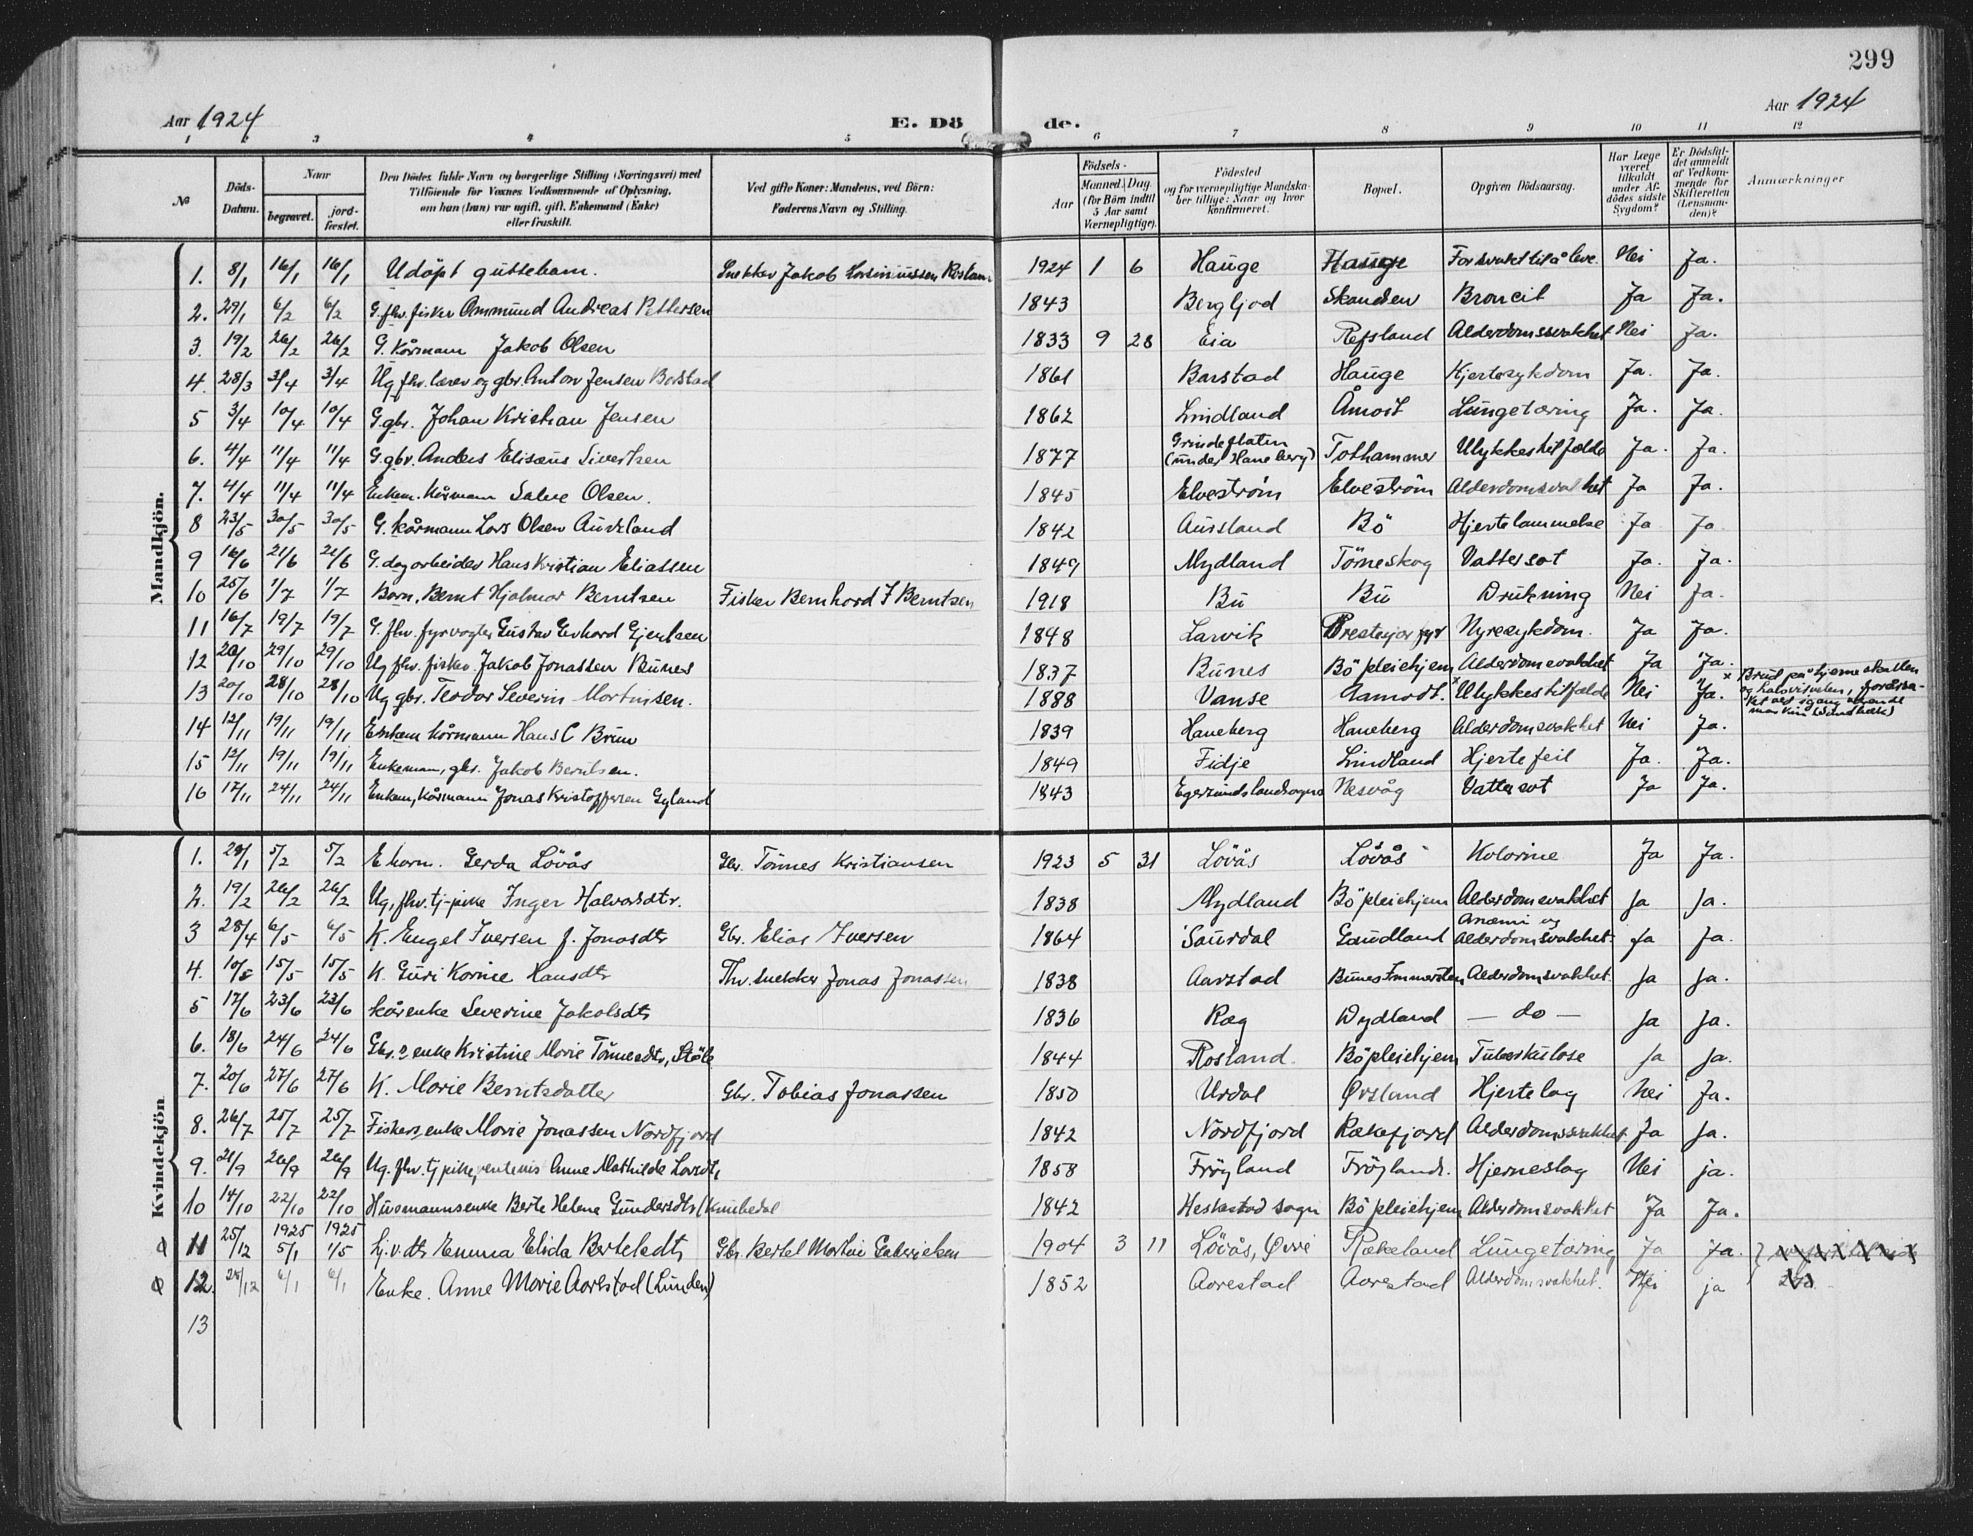 299
Aar 1924
E. Döde.
Aar 1924
1 2 3 4 5 6 7 8 9 10 11 12
№
Döds-Datum.
Naar
begravet.
jordfæstet.
Den Dödes fulde Navn og borgerlige Stilling (Næringsvei) med
Tilföiende for Voxnes Vedkommende af Oplysning,
om han (hun) var ugift, gift, Enkemand (Enke)
eller fraskilt.
Ved gifte Koner: Mandens, ved Börn:
Faderens Navn og Stilling.
Födsels-
Aar
Maaned. Dag
(for Börn indtil
5 Aar samt
Værnepligtige).
Födested
og for værnepligtige Mandskaber tillige: Naar og hvor
konfirmeret.
Bopæl.
Opgiven Dödsaarsag.
Har Læge
været
tilkaldt
under Afdödes sidste
Sygdom?
Er Dödsfaldet anmeldt
af Vedkommende for
Skifteretten
(Lensmanden)?
Anmærkninger
Mandkjön.
1. 8/1 16/1 16/1 Udöpt guttebarn. Snekker Jakob 1924 1 6 Hauge Hauge For svakt til å leve. Nei Ja.
2. 29/1 6/2 6/2 G. fhv. fisker Ommund Andreas Pettersen 1843 Bergljod Skanden Broncit Ja Ja.
3. 19/2 26/2 26/2 G. Kårmann Jakob Olsen 1833 9 28 Eia Refsland Alderdomssvakhet Nei Ja.
4. 28/3 3/4 3/4 Ug. fhv. lærer og gbr. Anton Jensen Barstad 1861 Barstad Hauge Hjertesykdom Ja. Ja.
5 3/4 10/4 10/4 G. gbr. Johan Kristian Jensen 1862 Lindland Åmot Lungetæring Ja. Ja.
6. 4/4 11/4 11/4 G. gbr. Anders Elisæus Sivertsen 1877 Grindeflaten (under Haneberg) Tothammer Ulykkestilfælde Ja. Ja.
7. 4/4 11/4 11/4 Enkem. Kårmann Salve Olsen. 1845 Elveström Elveström Alderdomssvakhet Ja Ja.
8 23/5 30/5 30/5 G. Kårmann Lars Olsen Aursland 1842 Aursland Bö Hjertelammelse Ja Ja.
9 16/6 21/6 21/6 G. dagarbeider Hans Kristian Eliassen 1849 Mydland Tömeskog Vattersot Ja. Ja.
10 25/6 1/7 1/7 Barn, Bernt Hjalmar Berntsen Fisker Bernhard J Berntsen 1918 Bu Bu Drukning Nei Ja.
11 16/7 19/7 19/7 G. fhv. fyrvogter Gustav Gerhard Gjertsen 1848 Larvik Prestejor fyr Nyresykdom. Ja Ja.
12 20/10 29/10 29/10 Ug. fhv. fisker Jakob Jonassen Bunes 1837 Bunes Bö pleiehjem Alderdomsvakhet Ja Ja.
13 20/10 28/10 28/10 Ug gbr. Teodor Severin Martinsen. 1888 Vanse Aamodt. × Ulykkestilfælde Nei Ja. × Brud på hjerneskallen og
14 12/11 19/11 19/11 Enkem kårmann Hans C Bruu 1839 Haneberg Haneberg Alderdomsvakhet Nei Ja.
15 12/11 19/11 19/11 Enkeman, gbr. Jakob Berntsen. 1849 Fidje Lindland Hjertefeil Ja. Ja.
16 17/11 24/11 24/11 Enkem, Kårmann Jonas Kristoffersen Gyland 1843 Egersunds landsogn Nesvåg Vattersot Ja Ja.
Kvindekjön.
1. 29/1 5/2 5/2 E barn. Gerda Lövås Gbr. Tönnes Kristiansen 1923 5 31 Lövås Lövås Kolorine Ja Ja.
2. 19/2 26/2 26/2 Ug, fhv. tj-pike Inger Halvorsdtr. 1838 Mydland Bö pleiehjem Alderdomsvakhet Ja Ja.
3 28/4 6/5 6/5 K. Engel Iversen f. Jonasdtr Gbr. Elias Iversen 1864 Saurdal Gaudland Anæmi og Alderdomsvakhet Ja Ja.
4. 10/5 15/5 15/5 K. Guri Korine Hansdtr Fhv. snekker Jonas Jonassen 1838 Aarstad Bunes Alderdomsvakhet. Ja Ja.
5 17/6 23/6 23/6 Kårenke Severine Jakobsdtr 1836 Ræg Dydland — do — Ja Ja.
6. 18/6 24/6 24/6 Gbr.s enke Kristine Marie Tönnesdtr, Stöle 1844 Rosland. Bö pleiehjem Tuberkulose Ja Ja.
7. 20/6 27/6 27/6 K. Marie Berntsdatter Gbr. Tobias Jonassen 1850 Urdal Ørsland Hjerteslag Nei Ja.
8. 26/7 25/7 25/7 Fiskers, enke Marie Jonassen Nordfjord 1842 Nordfjord Rækefjord Alderdomssvakhet. Ja Ja.
9. 21/9 26/9 26/9 Ug. fhv. tjpike, Anne Mathilde Larsdtr, 1858 Fröyland Fröyland. Hjerneslag Nei ja.
10 14/10 22/10 22/10 Husmannsenke Berte Helene Gundersdtr (Knubedal 1842 Heskestad sogn Bö pleiehjem Alderdomsvakhet Ja Ja.
ø 11 25/12 1925 5/1 1925 1/5 Gj.v.dtr Emma Elida Bertelsdtr Gbr. Bertel Martin Gabrielsen 1904 3 11 Lövås, Øvre Rækeland Lungetæring Ja Ja.
ø 12. 28/12 6/1 6/1 Enke. Anne Marie Aarstad (Lunden) 1852 Aarestad Aarestad Alderdomsvakhet. Nei ja
13